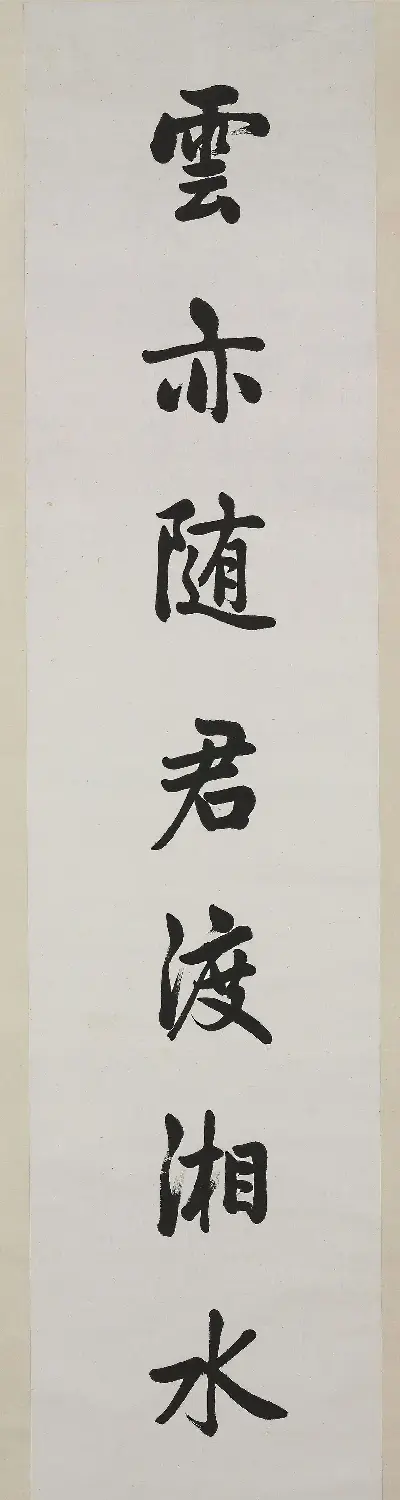 雲亦随君渡湘水